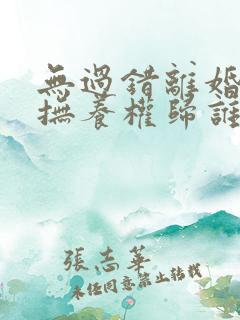 無過錯離婚
撫養權歸誰
張志華
未經同意禁止轉載